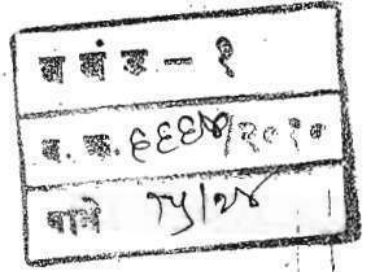 ब बं इ - १
द. क्र. ६६६४/२०१०
पाने १५/२४